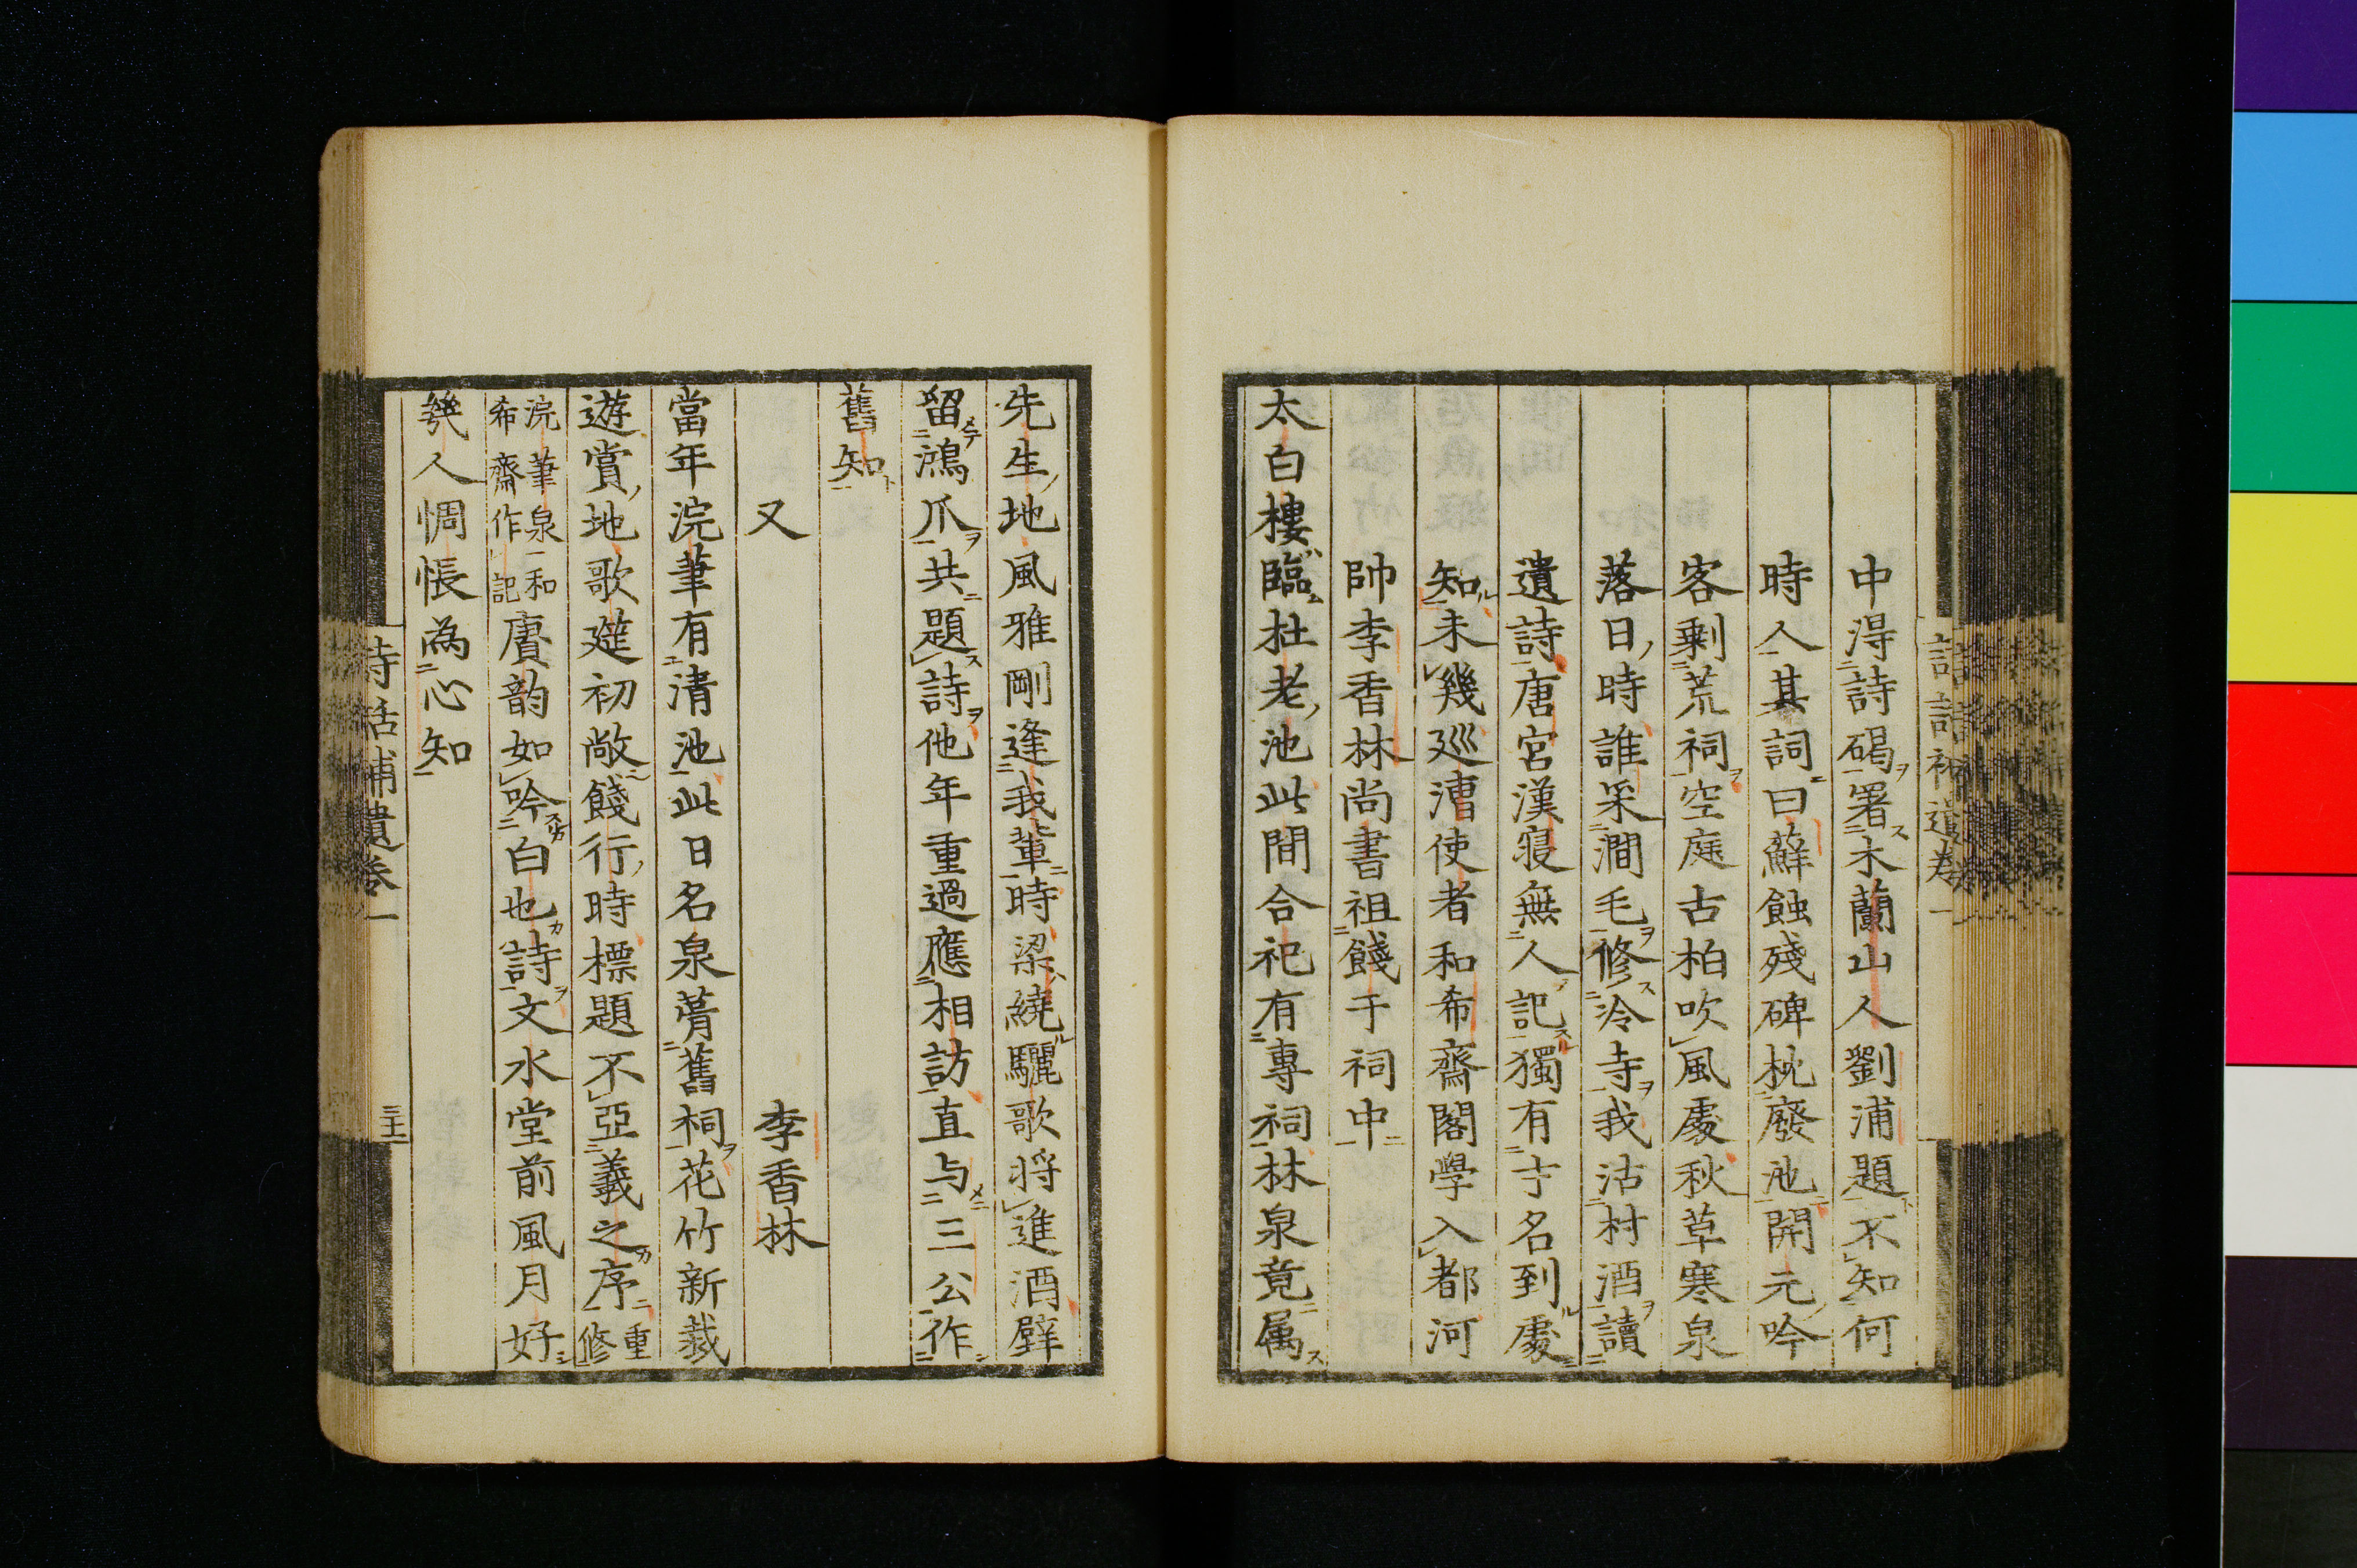 中淂詩碣署木蘭山人劉浦題不知何
時人其詞曰蘚蝕殘碑枕廢池開元吟
客剩荒祠空庭古柏吹風處秋草寒泉
落日時誰采澗毛修冷寺我沽村酒讀
遺詩唐宮漢寢無人記獨有才名到處
知未幾巡漕使者和希齋閣學入都河
帥李香林尚書祖餞于祠中
太白樓臨杜老池此間合祀有專祠林泉竟属
先生地風雅剛逢我輩時梁繞驪歌將進酒壁
留鴻爪共題詩他年重過應相訪直与三公作
舊知
又　李香林
當年浣筆有清池此日名泉葺舊祠花竹新栽
遊賞地歌筵初敞餞行時標題不亞羲之序重修
浣筆泉和希齋作記賡韵如吟白也詩文水堂前風月好
幾人惆悵為心知
詩話補遺卷一